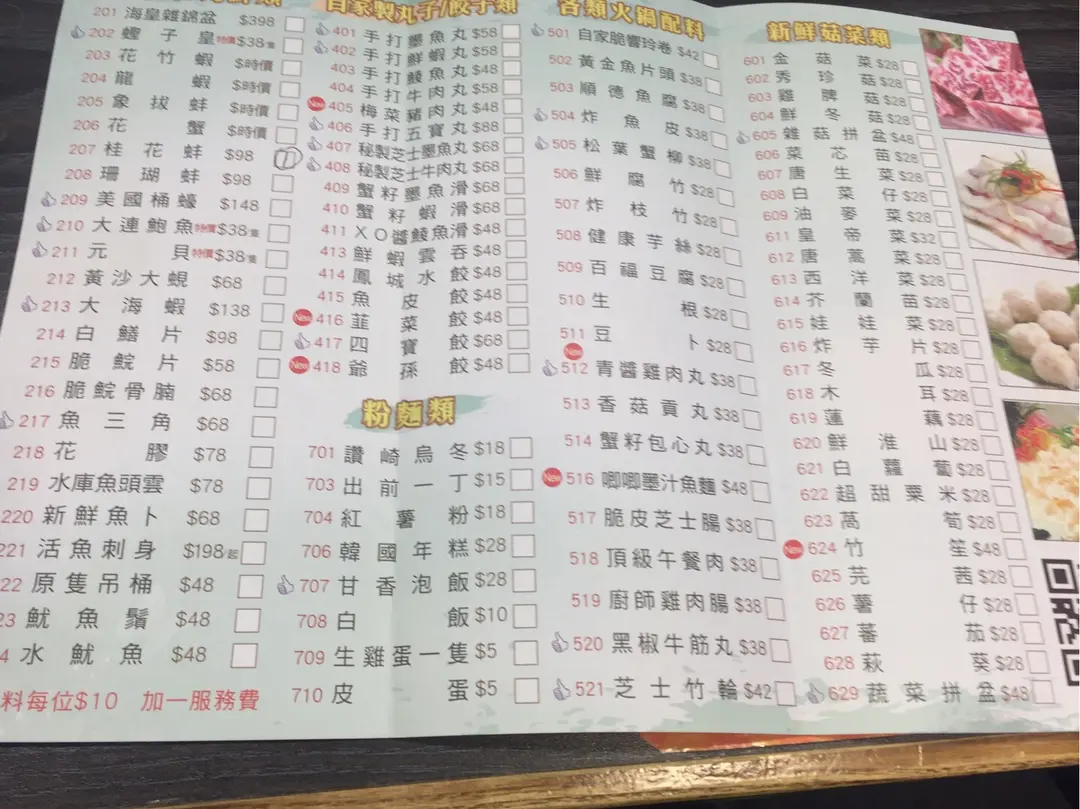 201 海皇雜錦盆 $398
202 蟶子皇 特價$38隻
203 花竹蝦 $時價
204 龍蝦 $時價
205 象拔蚌 $時價
206 花蟹 $時價
207 桂花蚌 $98
208 珊瑚蚌 $98
209 美國桶蠔 $148
210 大連鮑魚 特價$38隻
211 元貝 特價$38隻
212 黃沙大蜆 $68
213 大海蝦 $138
214 白鱔片 $98
215 脆鯇片 $58
216 脆鯇骨腩 $68
217 魚三角 $68
218 花膠 $78
219 水庫魚頭雲 $78
220 新鮮魚卜 $68
221 活魚刺身 $198起
22 原隻吊桶 $48
23 魷魚鬚 $48
4 水魷魚 $48
料每位$10 加一服務費
自家製丸子/餃子類
401 手打墨魚丸 $58
402 手打鮮蝦丸 $58
403 手打鯪魚丸 $48
404 手打牛肉丸 $58
New 405 梅菜豬肉丸 $48
406 手打五寶丸 $88
407 秘製芝士墨魚丸 $68
408 秘製芝士牛肉丸 $68
409 蟹籽墨魚滑 $68
410 蟹籽蝦滑 $68
411 XO醬鯪魚滑 $48
413 鮮蝦雲吞 $48
414 鳳城水餃 $48
415 魚皮餃 $48
New 416 韮菜餃 $48
417 四寶餃 $68
New 418 爺孫餃 $48
粉麵類
701 讚崎烏冬 $18
703 出前一丁 $15
704 紅薯粉 $18
706 韓國年糕 $28
707 甘香泡飯 $28
708 白飯 $10
709 生雞蛋一隻 $5
710 皮蛋 $5
各類火鍋配料
501 自家脆響玲卷 $42
502 黃金魚片頭 $38
503 順德魚腐 $38
504 炸魚皮 $38
505 松葉蟹柳 $38
506 鮮腐竹 $28
507 炸枝竹 $28
508 健康芋絲 $28
509 百福豆腐 $28
510 生根 $28
511 豆卜 $28
New 512 青醬雞肉丸 $38
513 香菇貢丸 $38
514 蟹籽包心丸 $38
New 516 唧唧墨汁魚麵 $48
517 脆皮芝士腸 $38
518 頂級午餐肉 $38
519 廚師雞肉腸 $38
520 黑椒牛筋丸 $38
521 芝士竹輪 $42
新鮮菇菜類
601 金菇菜 $28
602 秀珍菇 $28
603 雞脾菇 $28
604 鮮冬菇 $28
605 雜菇拼盆 $48
606 菜芯苗 $28
607 唐生菜 $28
608 白菜仔 $28
609 油麥菜 $28
611 皇帝菜 $32
612 唐蒿菜 $28
613 西洋菜 $28
614 芥蘭苗 $28
615 娃娃菜 $28
616 炸芋片 $28
617 冬瓜 $28
618 木耳 $28
619 蓮藕 $28
620 鮮淮山 $28
621 白蘿蔔 $28
622 超甜粟米 $28
623 萵筍 $28
New 624 竹笙 $48
625 芫茜 $28
626 薯仔 $28
627 蕃茄 $28
628 萩葵 $28
629 蔬菜拼盆 $48